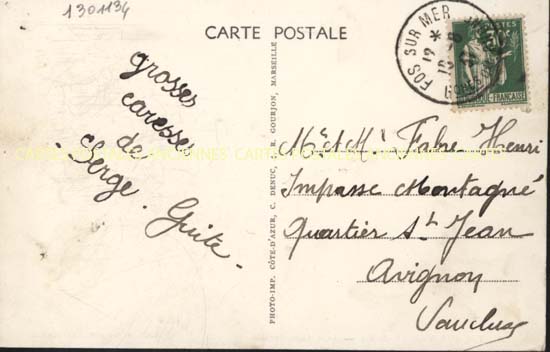 1301134
CARTE POSTALE
FOS SUR MER
19 *
POSTES
FRANÇAISE
grosses
caresses
de
Serge. Guite
CARTES POSTALES ANCIENNES CARTES POSTALES ANCIENNES
PHOTO-IMP. CÔTE-D'AZUR, C. DENUC, R. GOURJON, MARSEILLE
Mr et Me Fabre Henri
Impasse Montagné
Quartier St Jean
Avignon
Vaucluse